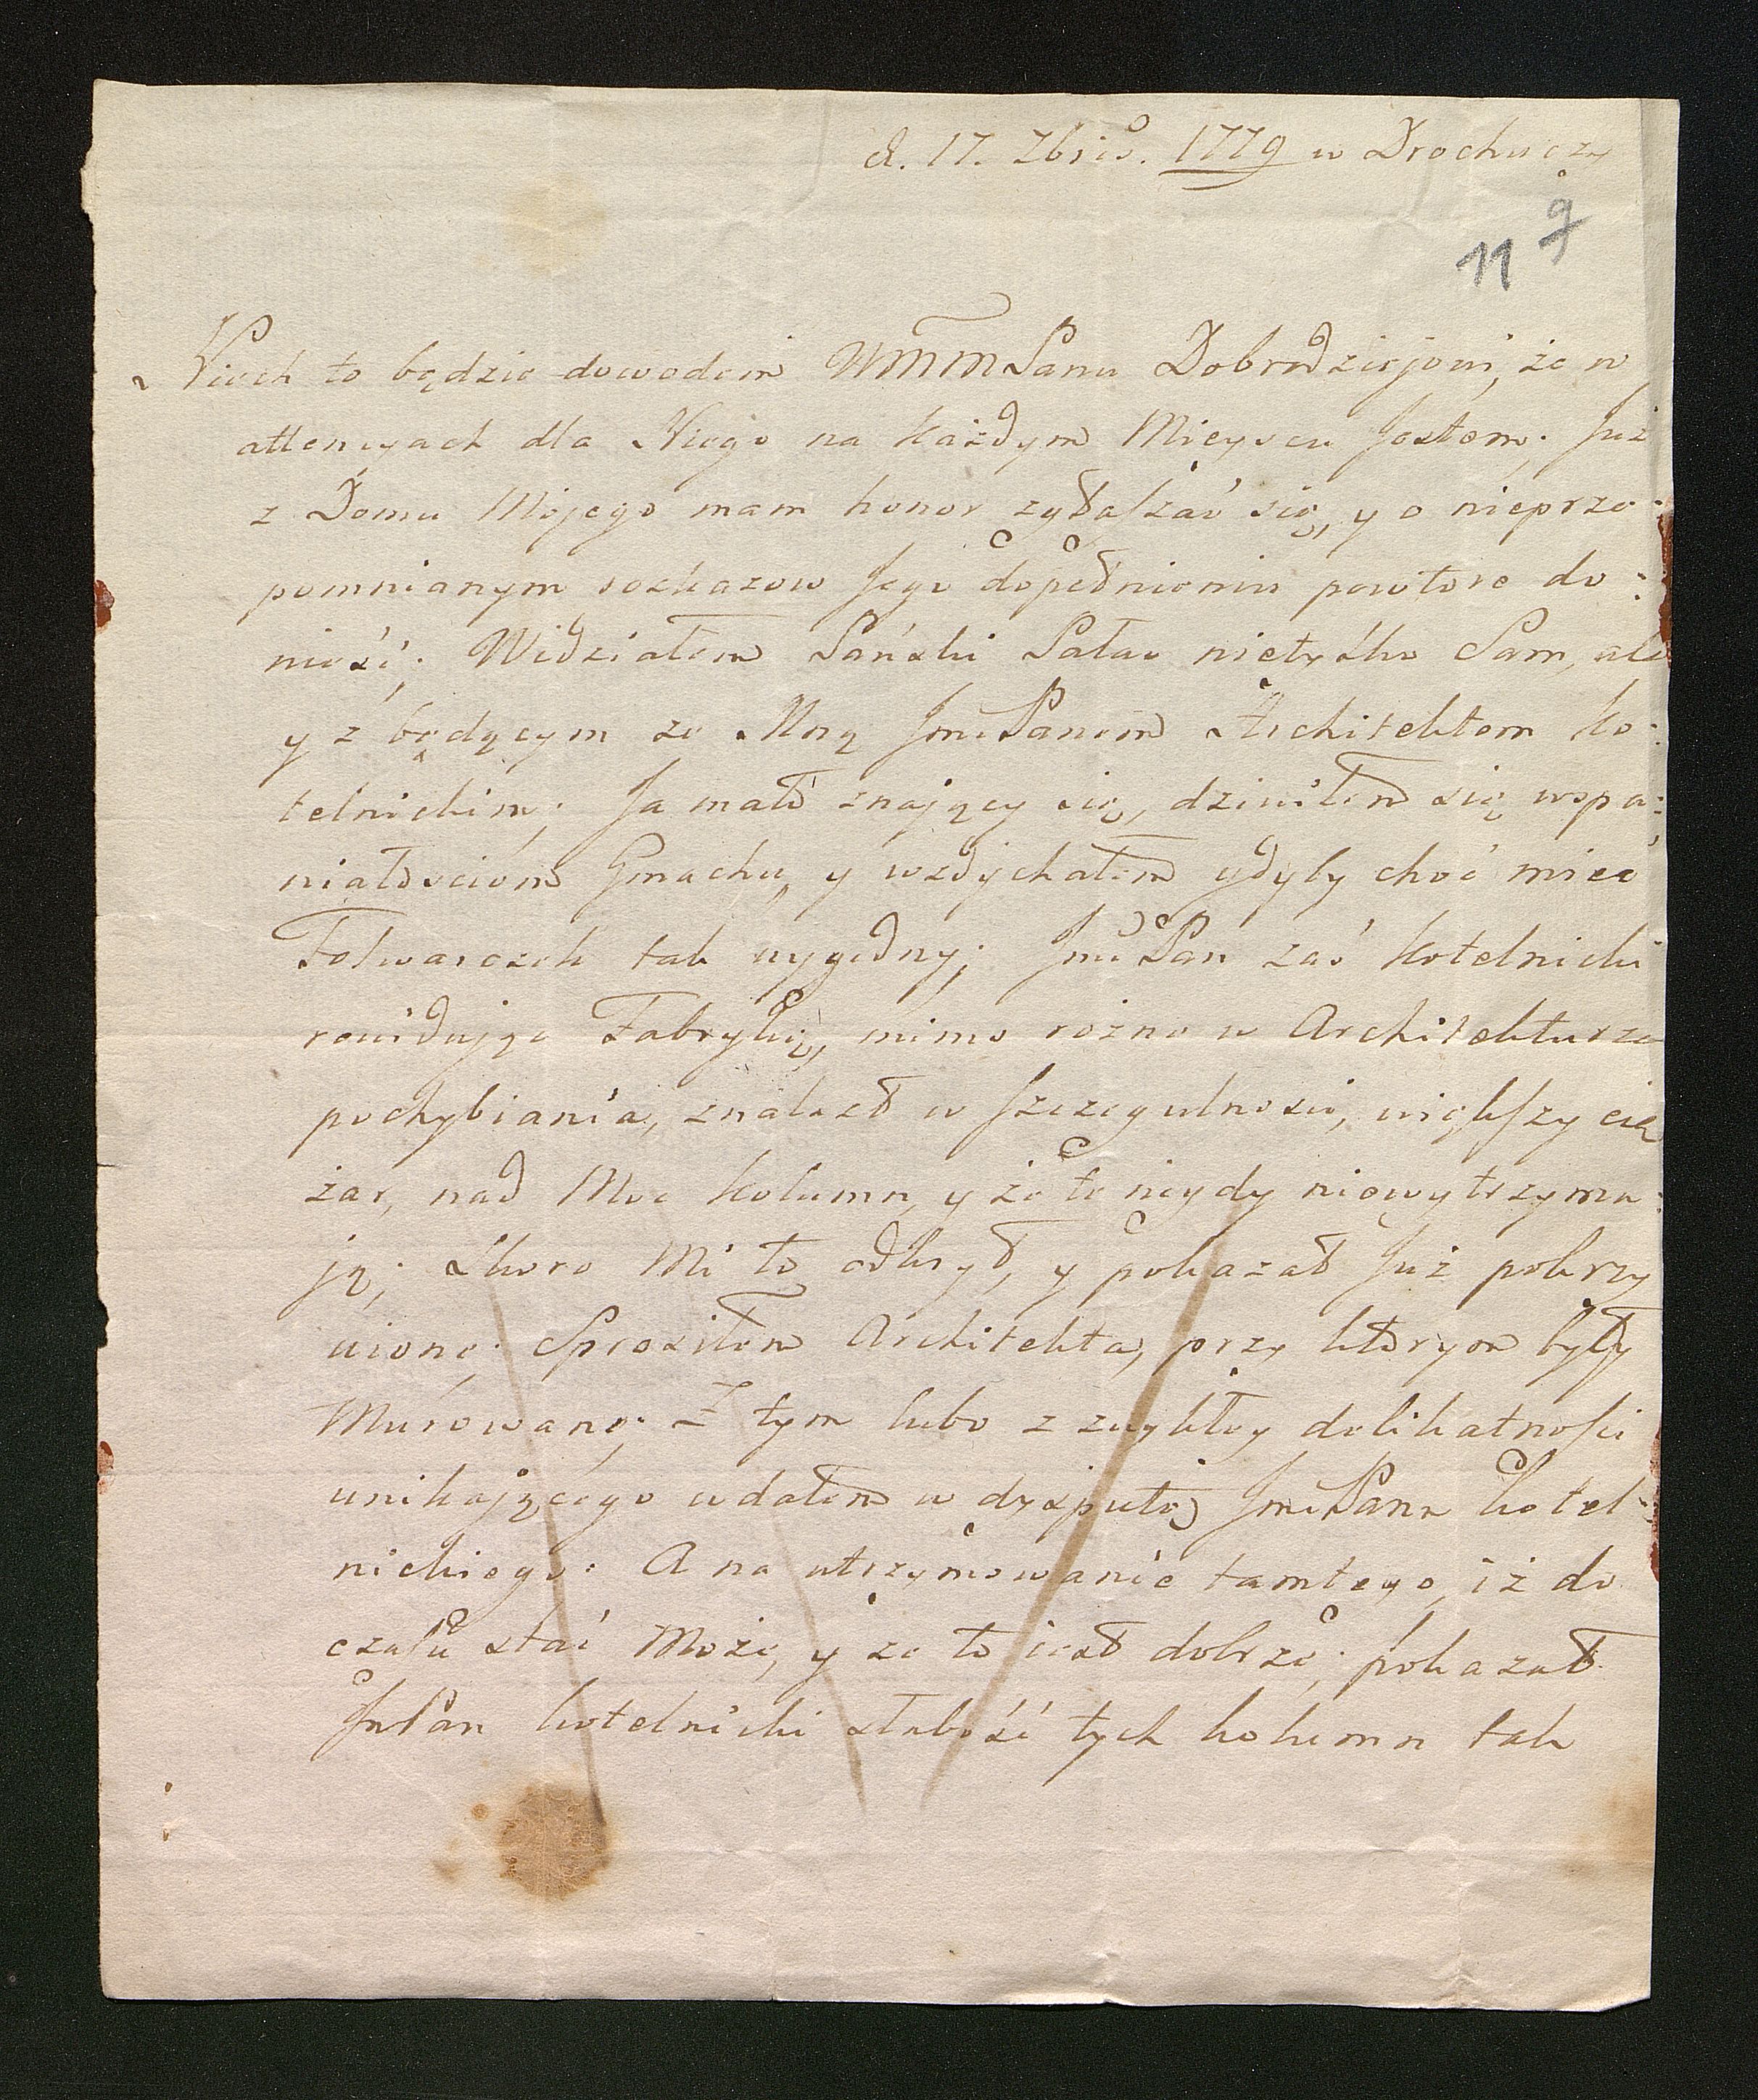 d. 17. 7bris. 1779 w Drohuczy
9
11
Niech to będzie dowodem WMM Panu Dobrodziejowi, że w
attencyach dla Niego na każdym Mieyscu Jestem. Już
z Domu Mojego mam honor zgłaszać się, y o nieprze:
pomnianym rozkazow Jego dopełnieniu powtore do:
nieść; Widziałem Pański Pałac nietylko Sam, ale
y z będącym ze Mną Jmć Panem Architektem Ko:
telnickim; Ja mało znający się, dziwiłem się wspa:
niałościom Gmachu, y wzdychałem gdyby choć mieć
Folwarczek tak wygodny; Jmć Pan zaś Kotelnicki
rewidując Fabrykę, mimo rożne w Architekturze
pochybiania, znalazł w szczegulności, większy cię
żar, nad Moc Kolumn, y że te nigdy niewytrzyma:
ją; Skoro Mi to odkrył, y pokazał Już pokrzy
wione; Sprosiłem Architekta, przy ktorym były
Murowane; Z tym lubo z zwykłey delikatności
unikającego wdałem w dysputę Jmć Pana Kotel:
nickiego: A na utrzymowanie tamtego, iż do
czasu stać Może, y że to iest dobrze; pokazał
JmPan Kotelnicki słabość tych kolumn tak